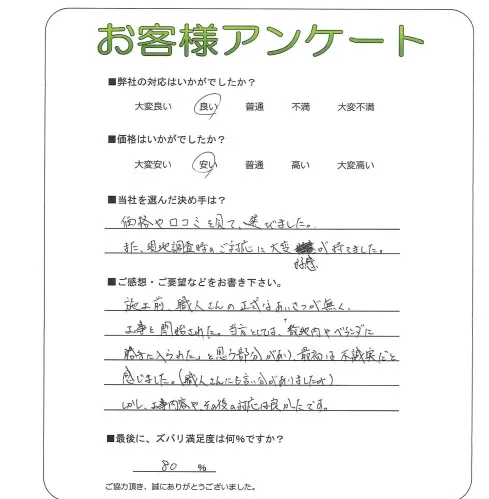 お客様アンケート
■弊社の対応はいかがでしたか？
大変良い 良い 普通 不満 大変不満
■価格はいかがでしたか？
大変安い 安い 普通 高い 大変高い
■当社を選んだ決め手は？
価格や口コミを見て、選びました。
また、現地調査時のご対応に大変 好感 が持てました。
■ご感想・ご要望などをお書き下さい。
施工前、職人さんの正式なあいさつが無く、
工事を開始された。当方としては、「敷地内やベランダに
勝手に入られた」と思う部分があり、最初は不誠実だと
感じました。（職人さんにも言い分がありましたが）
しかし、工事内容や、その後の対応は良かったです。
■最後に、ズバリ満足度は何%ですか？
80 %
ご協力頂き、誠にありがとうございました。